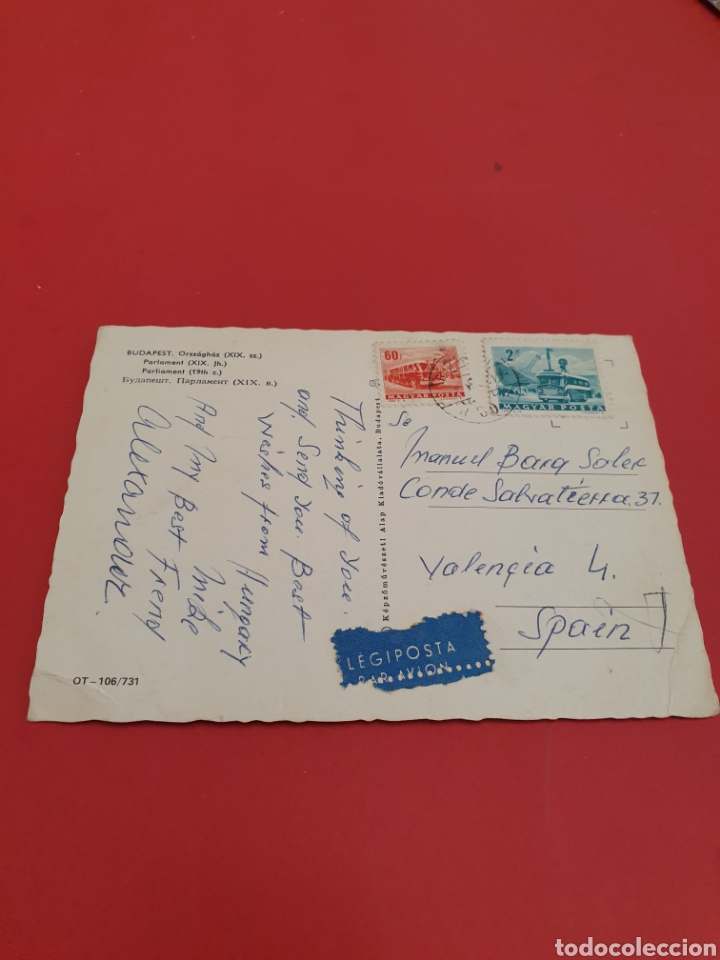 BUDAPEST. Országház (XIX. sz.)
Parlament (XIX. Jh.)
Parliament (19th c.)
Будапешт. Парламент (XIX. в.)
60f
MAGYAR POSTA
2Ft
MAGYAR POSTA
Képzőművészeti Alap Kiadóvállalata, Budapest
Thinking of You.
and Send You. Best
Wishes from Hungary
Mike
And My Best Friend
Alexander.
Manuel Barg Soler
Conde Salvatierra. 37.
Valencia 4.
Spain
LÉGIPOSTA
PAR AVION
OT—106/731
todocoleccion